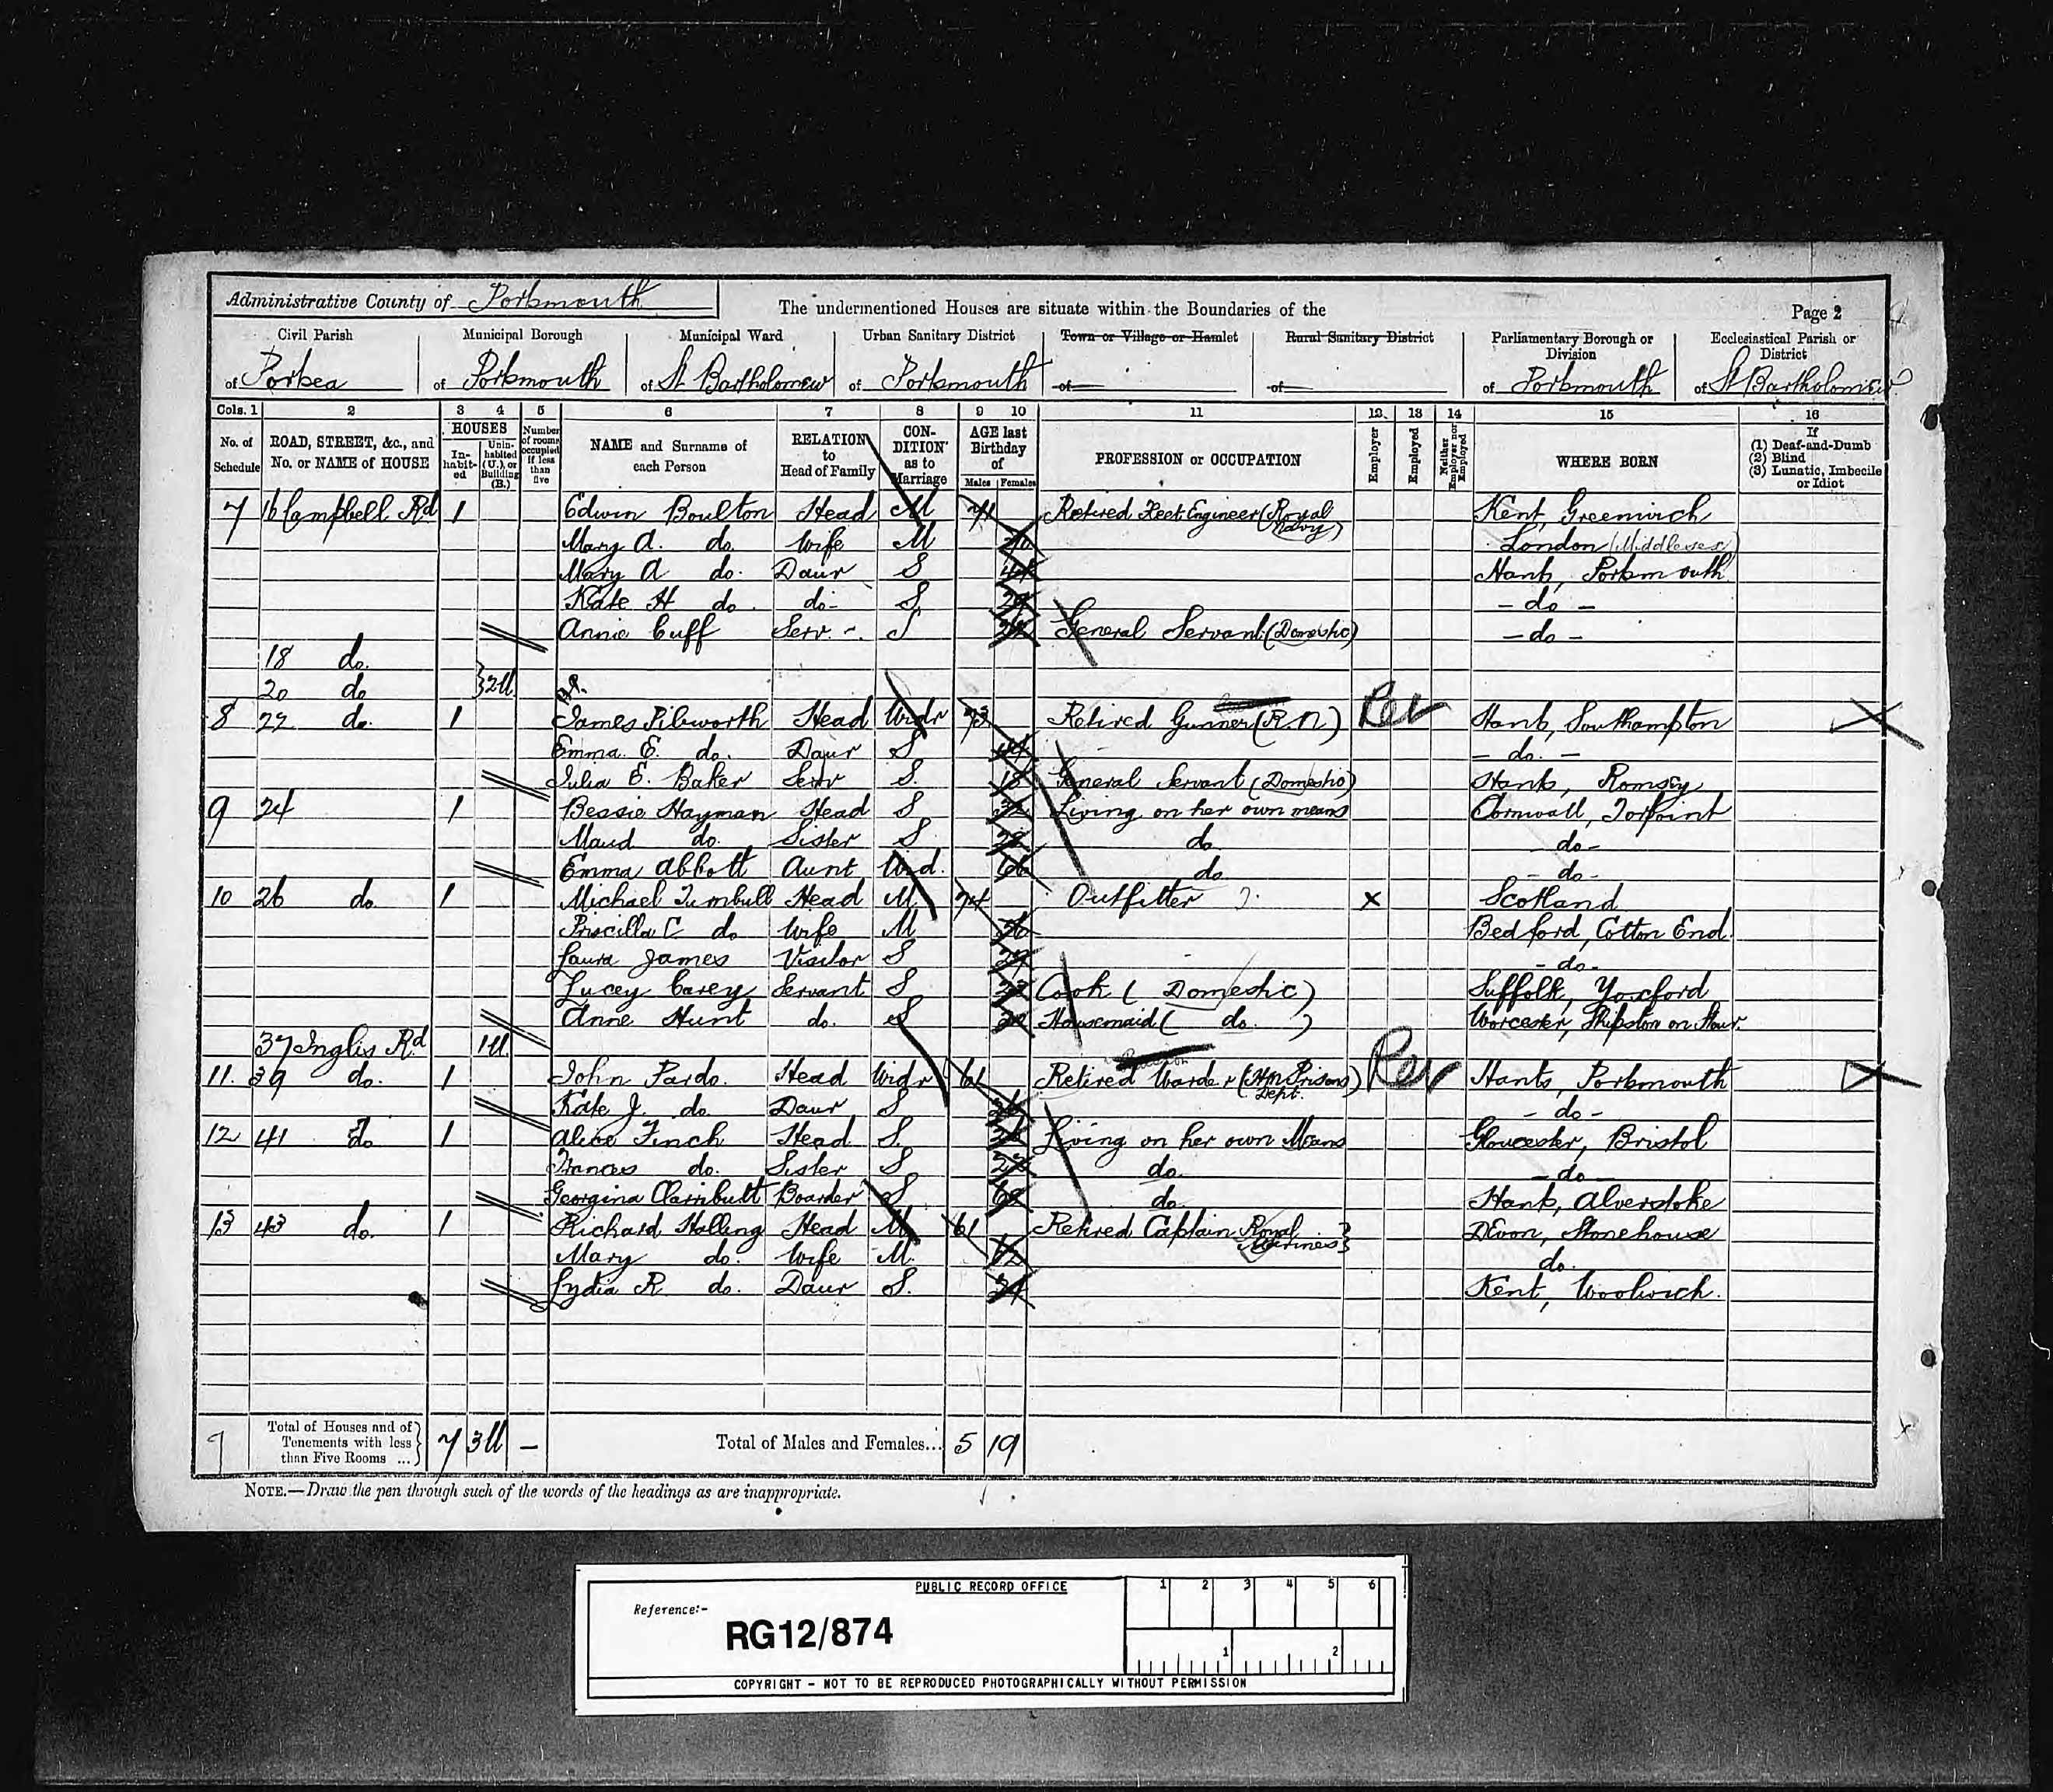 Administrative County of Portsmouth
The undermentioned Houses are situate within the Boundaries of the
Page 2
Civil Parish Municipal Borough Municipal Ward Urban Sanitary District Town or Village or Hamlet Rural Sanitary District Parliamentary Borough or Division Ecclesiastical Parish or District
of Portsea of Portsmouth of St Bartholomew of Portsmouth of of of Portsmouth of St Bartholomew
Cols. 1 2 3 4 5 6 7 8 9 10 11 12 13 14 15 16
No. of Schedule ROAD, STREET, &c., and No. or NAME of HOUSE HOUSES In-habit-ed Unin-habited (U.), or Building (B.) Number of rooms occupied if less than five NAME and Surname of each Person RELATION to Head of Family CON-DITION as to Marriage AGE last Birthday of Males Females PROFESSION or OCCUPATION Employer Employed Neither Employer nor Employed WHERE BORN If (1) Deaf-and-Dumb (2) Blind (3) Lunatic, Imbecile or Idiot
7 16 Campbell Rd 1 Edwin Boulton Head M 71 Retired Fleet Engineer (Royal Navy) Kent, Greenwich
Mary A. do. Wife M London (Middlesex)
Mary A do. Daur S Hants, Portsmouth
Kate H do. do- S 29 - do -
Annie Cuff Serv. S General Servant (Domestic) - do -
18 do.
20 do } 2U
8 22 do. 1 James Pibworth Head Widr 73 Retired Gunner (R.N.) Rev Hants, Southampton
Emma. E. do. Daur S 44 - do. -
Julia E. Baker Serv S. 18 General Servant (Domestic) Hants, Romsey
9 24 1 Bessie Hayman Head S 32 Living on her own means Cornwall, Torpoint
Maud do. Sister S 28 do. do-
Emma Abbott Aunt Wid. 66 do - do-
10 26 do. 1 Michael Turnbull Head M. 74 Outfitter X Scotland
Priscilla C do Wife M 56 Bedford, Cotton End.
Laura James Visitor S 29 - do-
Lucey Carey Servant S 23 Cook (Domestic) Suffolk, Yoxford
Anne Hunt do. S 20 Housemaid (do.) Worcester, Shipston on Stour.
37 Inglis Rd 1U.
11. 39 do. 1 John Pardo. Head Widr 61 Retired Warder (HM Prisons Dept.) Rev Hants, Portsmouth
Kate J. do Daur S 26 - do -
12 41 do 1 Alice Finch Head S. Living on her own Means Gloucester, Bristol
Frances do. Sister S 23 do. - do
Georgina Clarributt Boarder S 68 do. Hants, Alverstoke
13 43 do. 1 Richard Halling Head M 61 Retired Captain Royal Marines} Devon, Stonehouse
Mary do. Wife M. 62 do.
Lydia R. do. Daur S. 34 Kent, Woolwich.
Total of Houses and of Tenements with less than Five Rooms ...} 7 3U - Total of Males and Females... 5 19
NOTE.—Draw the pen through such of the words of the headings as are inappropriate.
PUBLIC RECORD OFFICE
1 2 3 4 5 6
Reference:-
RG12/874
1 2
COPYRIGHT - NOT TO BE REPRODUCED PHOTOGRAPHICALLY WITHOUT PERMISSION